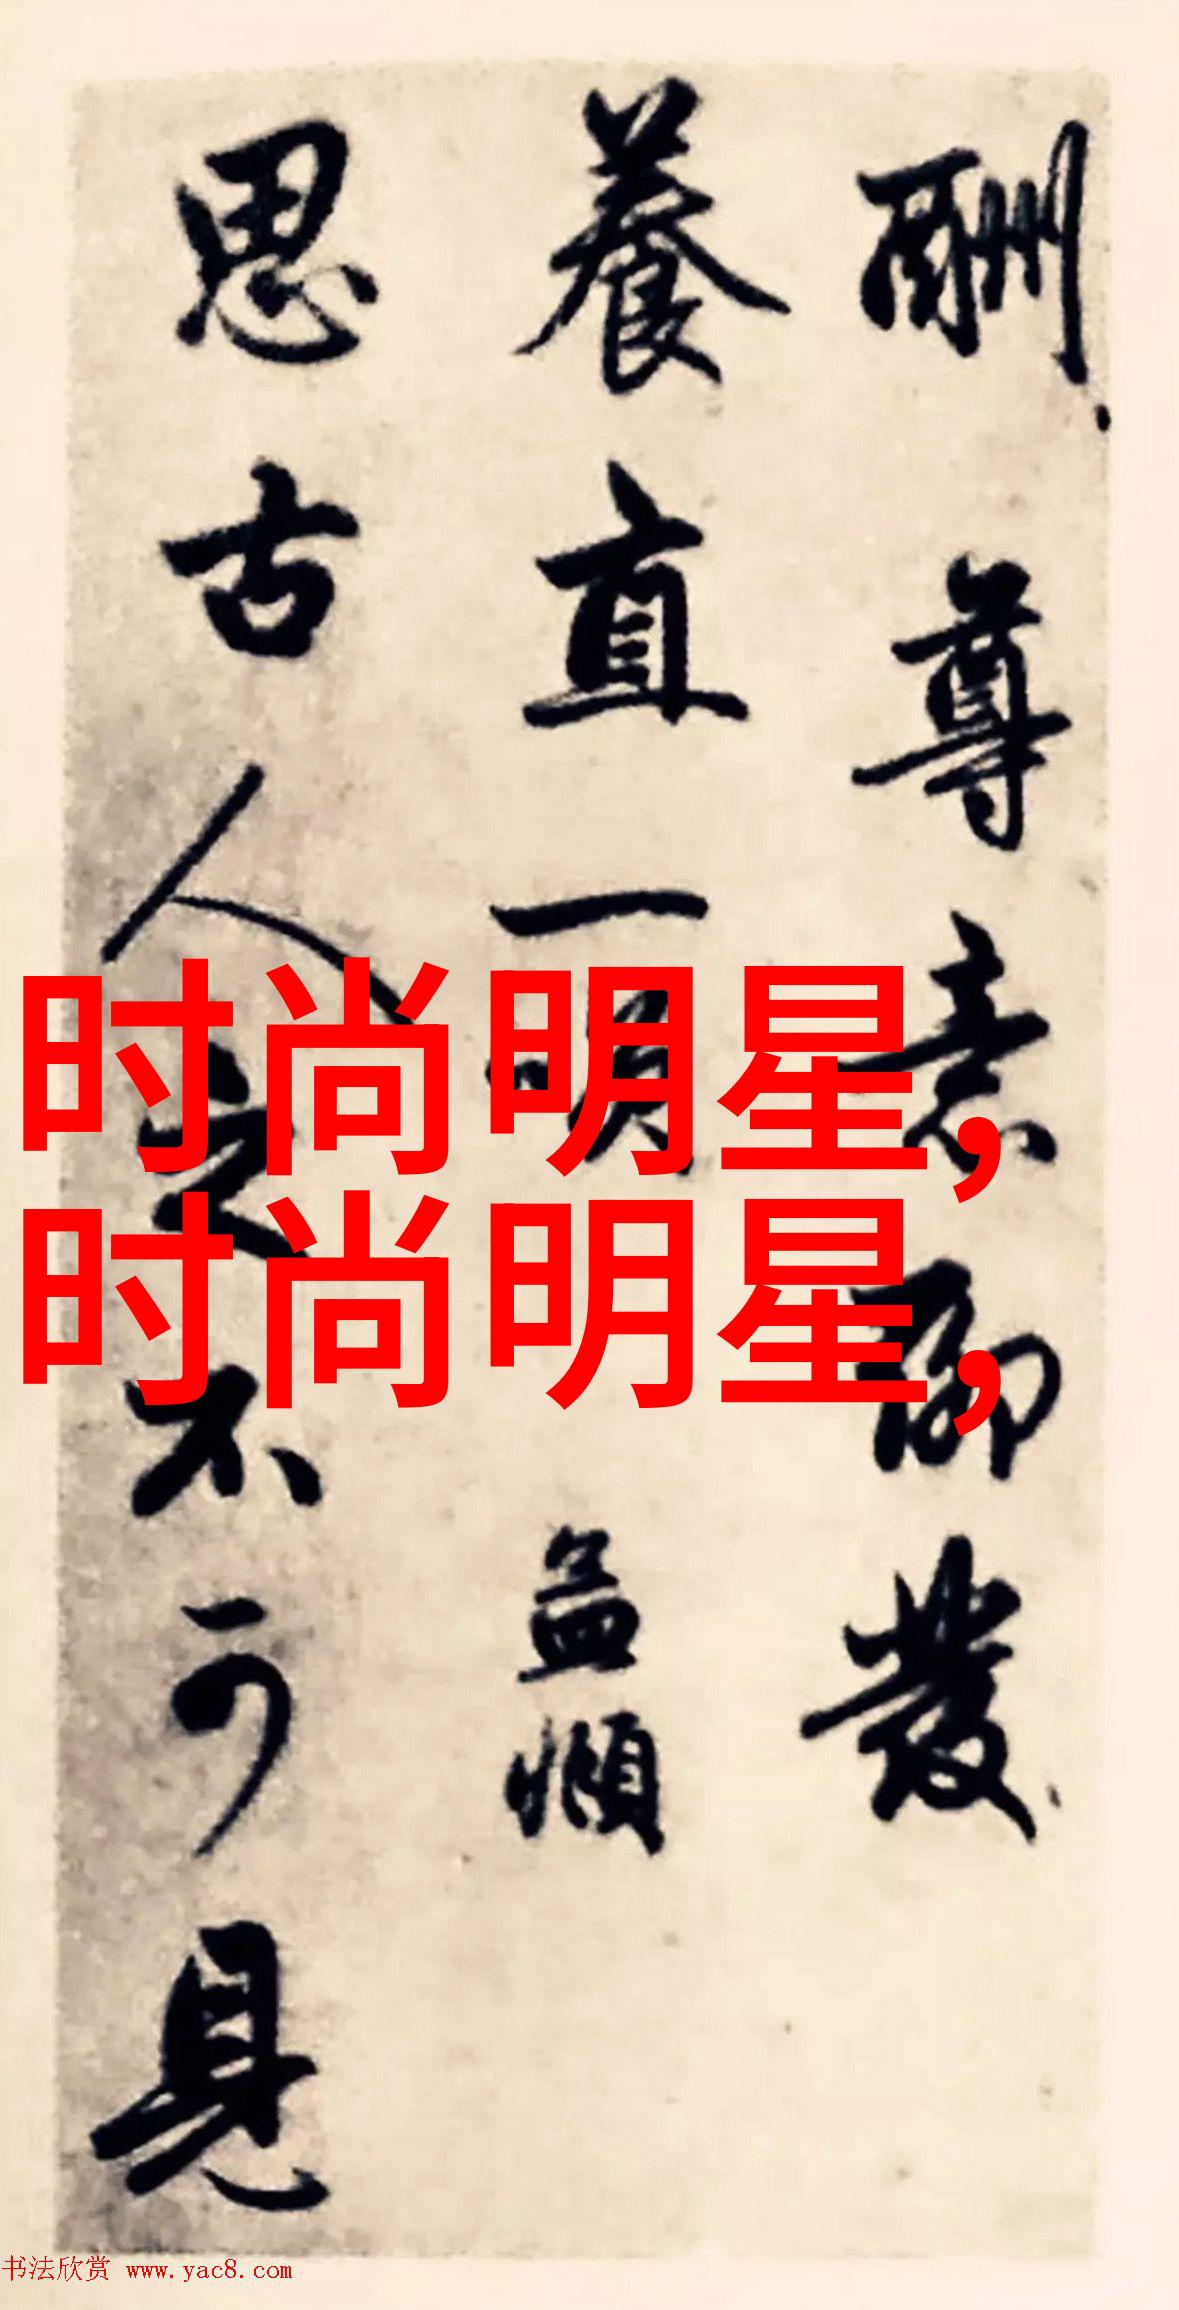 酬尊意聊發
養直一明 孟頫
思古人之不可見
时尚明星，
时尚明星，
书法欣赏 www.yac8.com